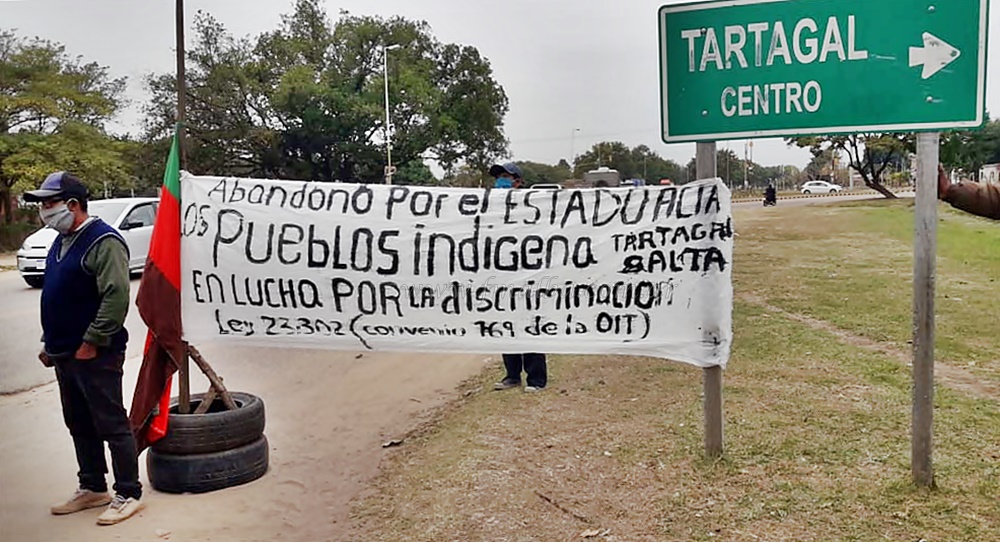 Abandono Por el ESTADO ACIA
LOS PUEBLOS indigena TARTAGAL
SALTA
EN LUCHA POR LA discriminacion
Ley 23.302 (convenio 169 de la OIT)
TARTAGAL
CENTRO